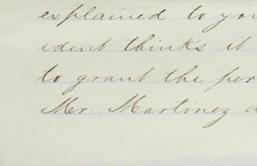 explained to you
ident thinks it
to grant the per
Mr. Martinez a